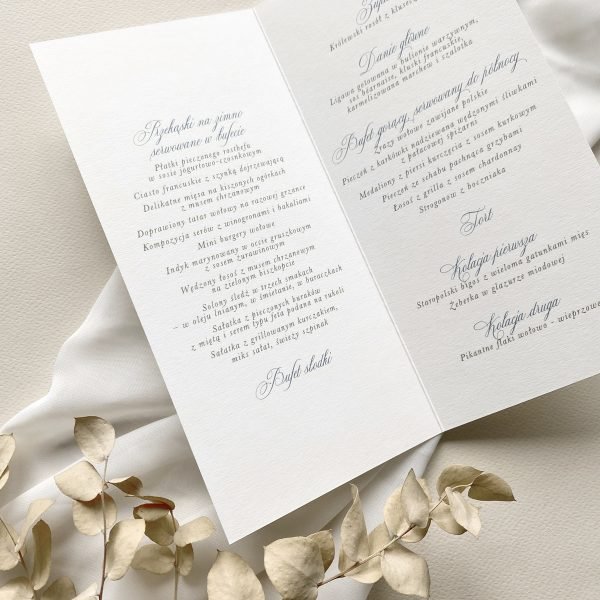 Przekąski na zimno
serwowane w bufecie
Płatki pieczonego rostbefu
w sosie jogurtowo-czosnkowym
Ciasto francuskie z szynką dojrzewającą
Delikatne mięsa na kiszonych ogórkach
z musem chrzanowym
Doprawiony tatar wołowy na razowej grzance
Kompozycja serów z winogronami i bakaliami
Mini burgery wołowe
Indyk marynowany w occie gruszkowym
z sosem żurawinowym
Wędzony łosoś z musem chrzanowym
na zielonym biszkopcie
Solony śledź w trzech smakach
– w oleju lnianym, w śmietanie, w buraczkach
Sałatka z pieczonych buraków
z miętą i serem typu feta podana na rukoli
Sałatka z grillowanym kurczakiem,
miks sałat, świeży szpinak
Bufet słodki
Królewski rosół z
Danie główne
Ligawa gotowana w bulionie warzywnym,
sos béarnaise, kluski francuskie,
karmelizowana marchew i szalotka
Bufet gorący, serwowany do północy
Zrazy wołowe zawijane polskie
Pieczeń z karkówki nadziewana wędzonymi śliwkami
z pałacowej spiżarni
Medaliony z piersi kurczęcia z sosem kurkowym
Pieczeń ze schabu pachnąca grzybami
Łosoś z grilla z sosem chardonnay
Strogonow z boczniaka
Tort
Kolacja pierwsza
Staropolski bigos z wieloma gatunkami mięs
Żeberka w glazurze miodowej
Kolacja druga
Pikantne flaki wołowo – wieprzowe